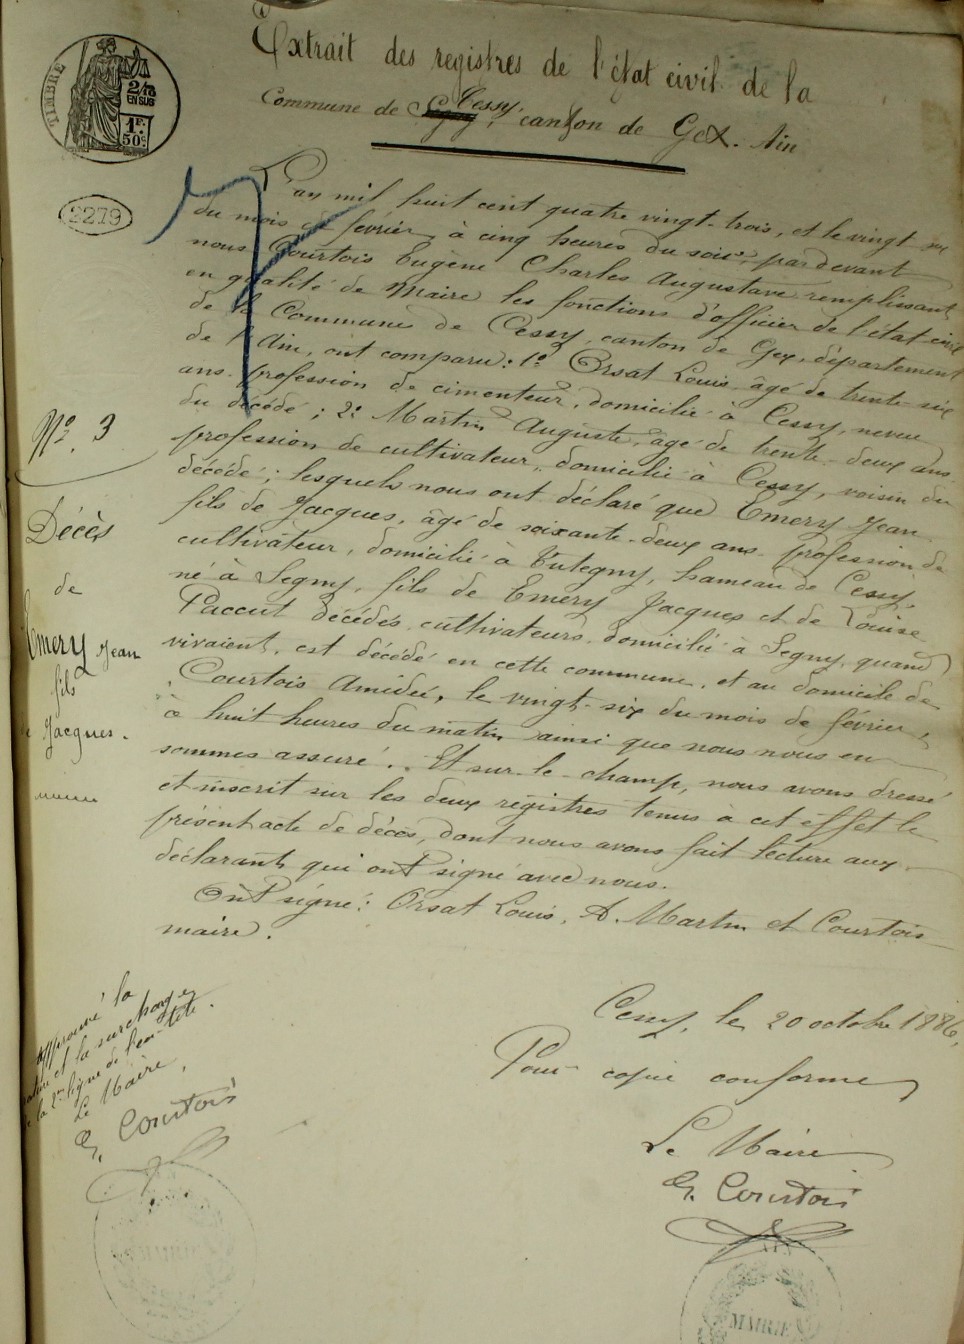 Extrait des registres de l'état civil de la
Commune de Segny Cessy, canton de Gex. Ain
TIMBRE
2/10
EN SUS
1F.
50c
2279
L'an mil huit cent quatre vingt-trois, et le vingt six
du mois de février, à cinq heures du soir, pardevant
nous Courtois Eugène Charles Augustave remplissant
en qualité de Maire les fonctions d'officier de l'état-civil
de la Commune de Cessy, canton de Gex, département
de l'Ain, ont comparu : 1º Orsat Louis âgé de trente-six
ans profession de cimenteur, domicilié à Cessy, neveu
du décédé ; 2º Martin Auguste, âgé de trente-deux ans
profession de cultivateur, domicilié à Cessy, voisin du
décédé ; lesquels nous ont déclaré que Emery Jean
fils de Jacques, âgé de soixante-deux ans profession de
cultivateur, domicilié à Tutegny, hameau de Cessy,
né à Segny, fils de Emery Jacques et de Louise
Paccut décédés cultivateurs domicilié à Segny, quand
vivaient, est décédé en cette commune, et au domicile de
Courtois Amédée, le vingt-six du mois de février,
à huit heures du matin ainsi que nous nous en
sommes assuré. Et sur-le-champ, nous avons dressé
et inscrit sur les deux registres tenus à cet effet le
présent acte de décès, dont nous avons fait lecture aux
déclarants qui ont signé avec nous.
Ont signé : Orsat Louis, A. Martin et Courtois
maire.
Nº 3
Décès
de
Emery Jean
fils
de Jacques.
Approuvé la
rature et la surcharge
de la 2me ligne de l'en-tête.
Le Maire,
E. Courtois
Cessy, le 20 octobre 1886,
Pour copie conforme
Le Maire
E. Courtois
MAIRIE
AIN
MAIRIE